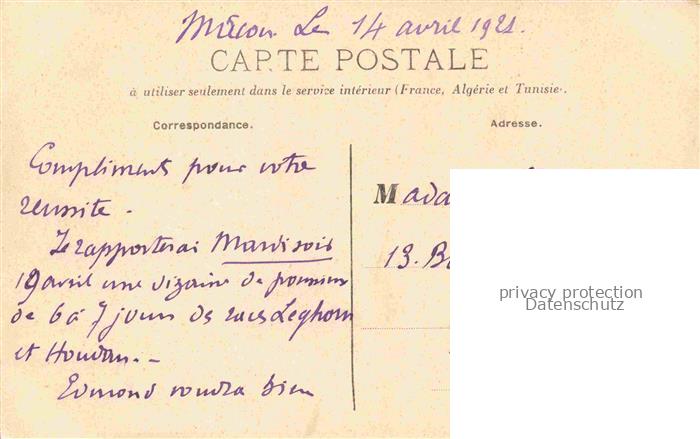 Mirecourt Le 14 avril 1921.
CARTE POSTALE
à utiliser seulement dans le service intérieur (France, Algérie et Tunisie).
Correspondance.
Adresse.
Compliments pour votre
reussite.
Je rapporterai Mardi soir
19 avril une dizaine de poussins
de 6 à 7 jours de races Leghorn
et Houdan. -
Edmond voudra bien
Mada
13. B
privacy protection
Datenschutz